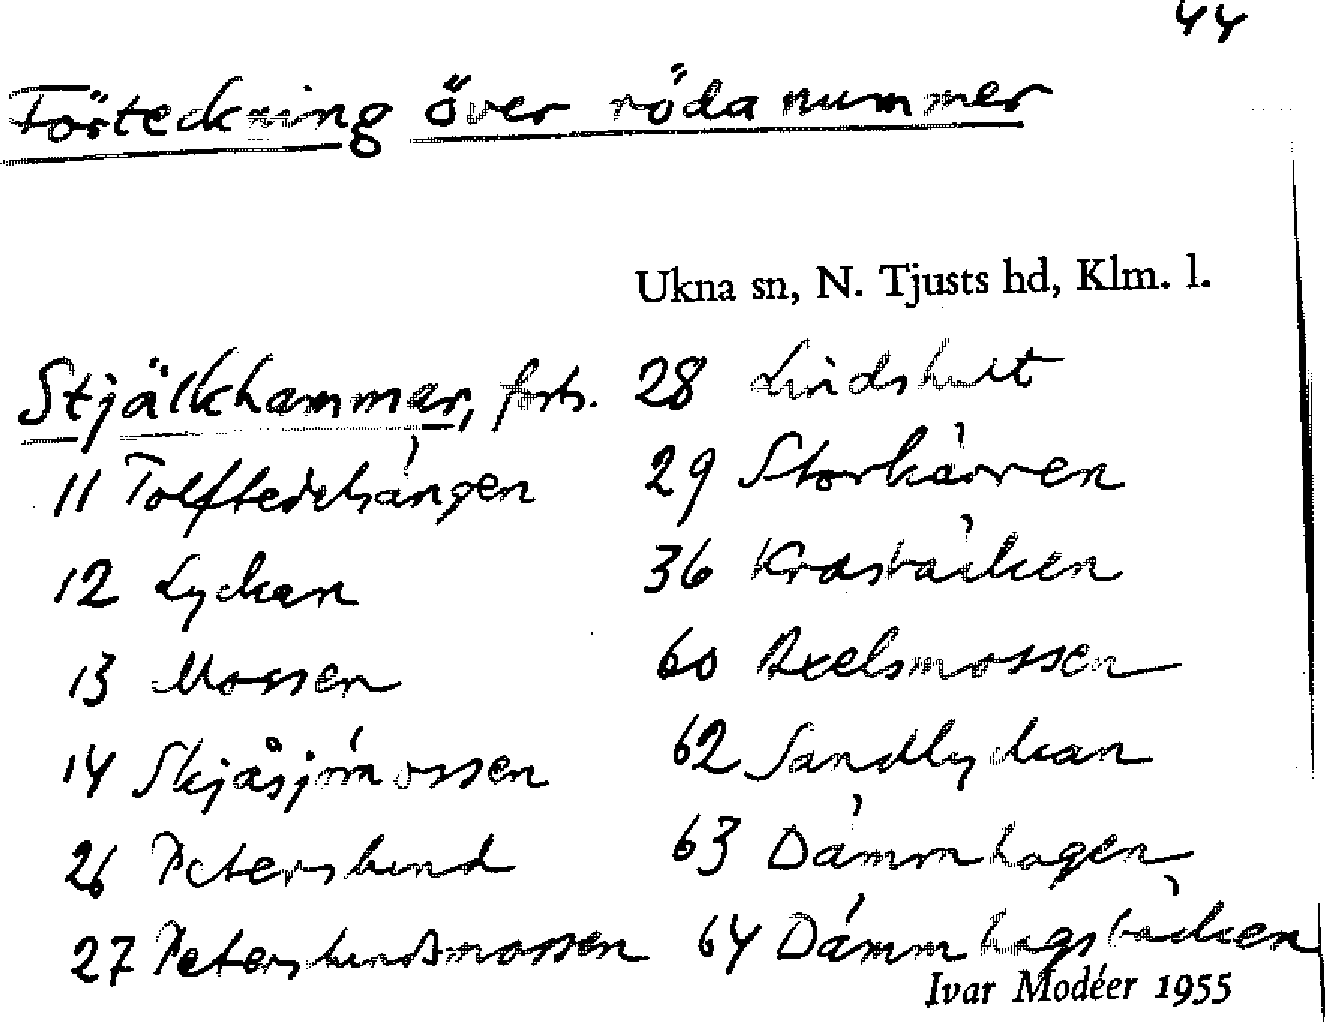 44
Förteckning över röda nummer
Ukna sn, N. Tjusts hd, Klm. l.
Stjälkhammar, forts.
11 Tolftedelsängen
12 Lyckan
13 Mossen
14 Skjåsjömossen
26 Peterslund
27 Peterslundsmossen
28 Lindshult
29 Storkärren
36 Krasbäcken
60 Axelsmossen
62 Sandlyckan
63 Dämmhagen
64 Dämmhagsbäcken
Ivar Modéer 1955